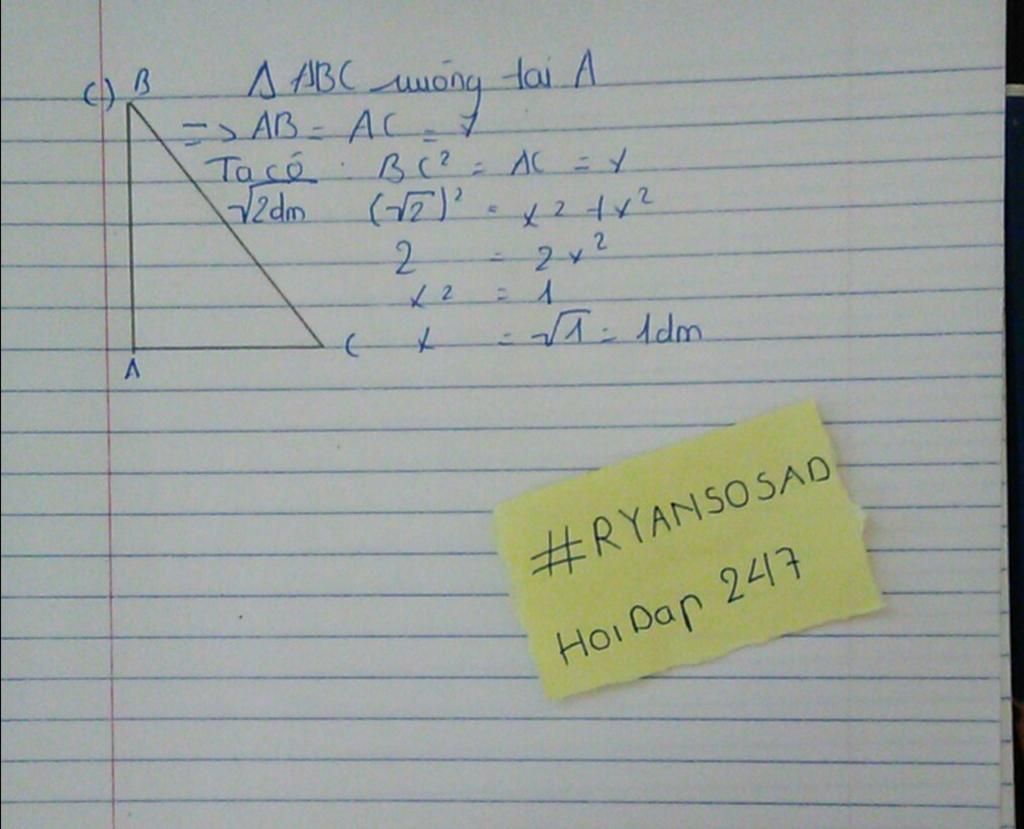 c) B Δ ABC vuông tại A
=> AB = AC = x
Ta có : BC² = AC = x
√2dm (√2)² = x² + x²
2 = 2x²
x² = 1
C x = √1 = 1dm
A
#RYANSOSAD
HoiDap 247